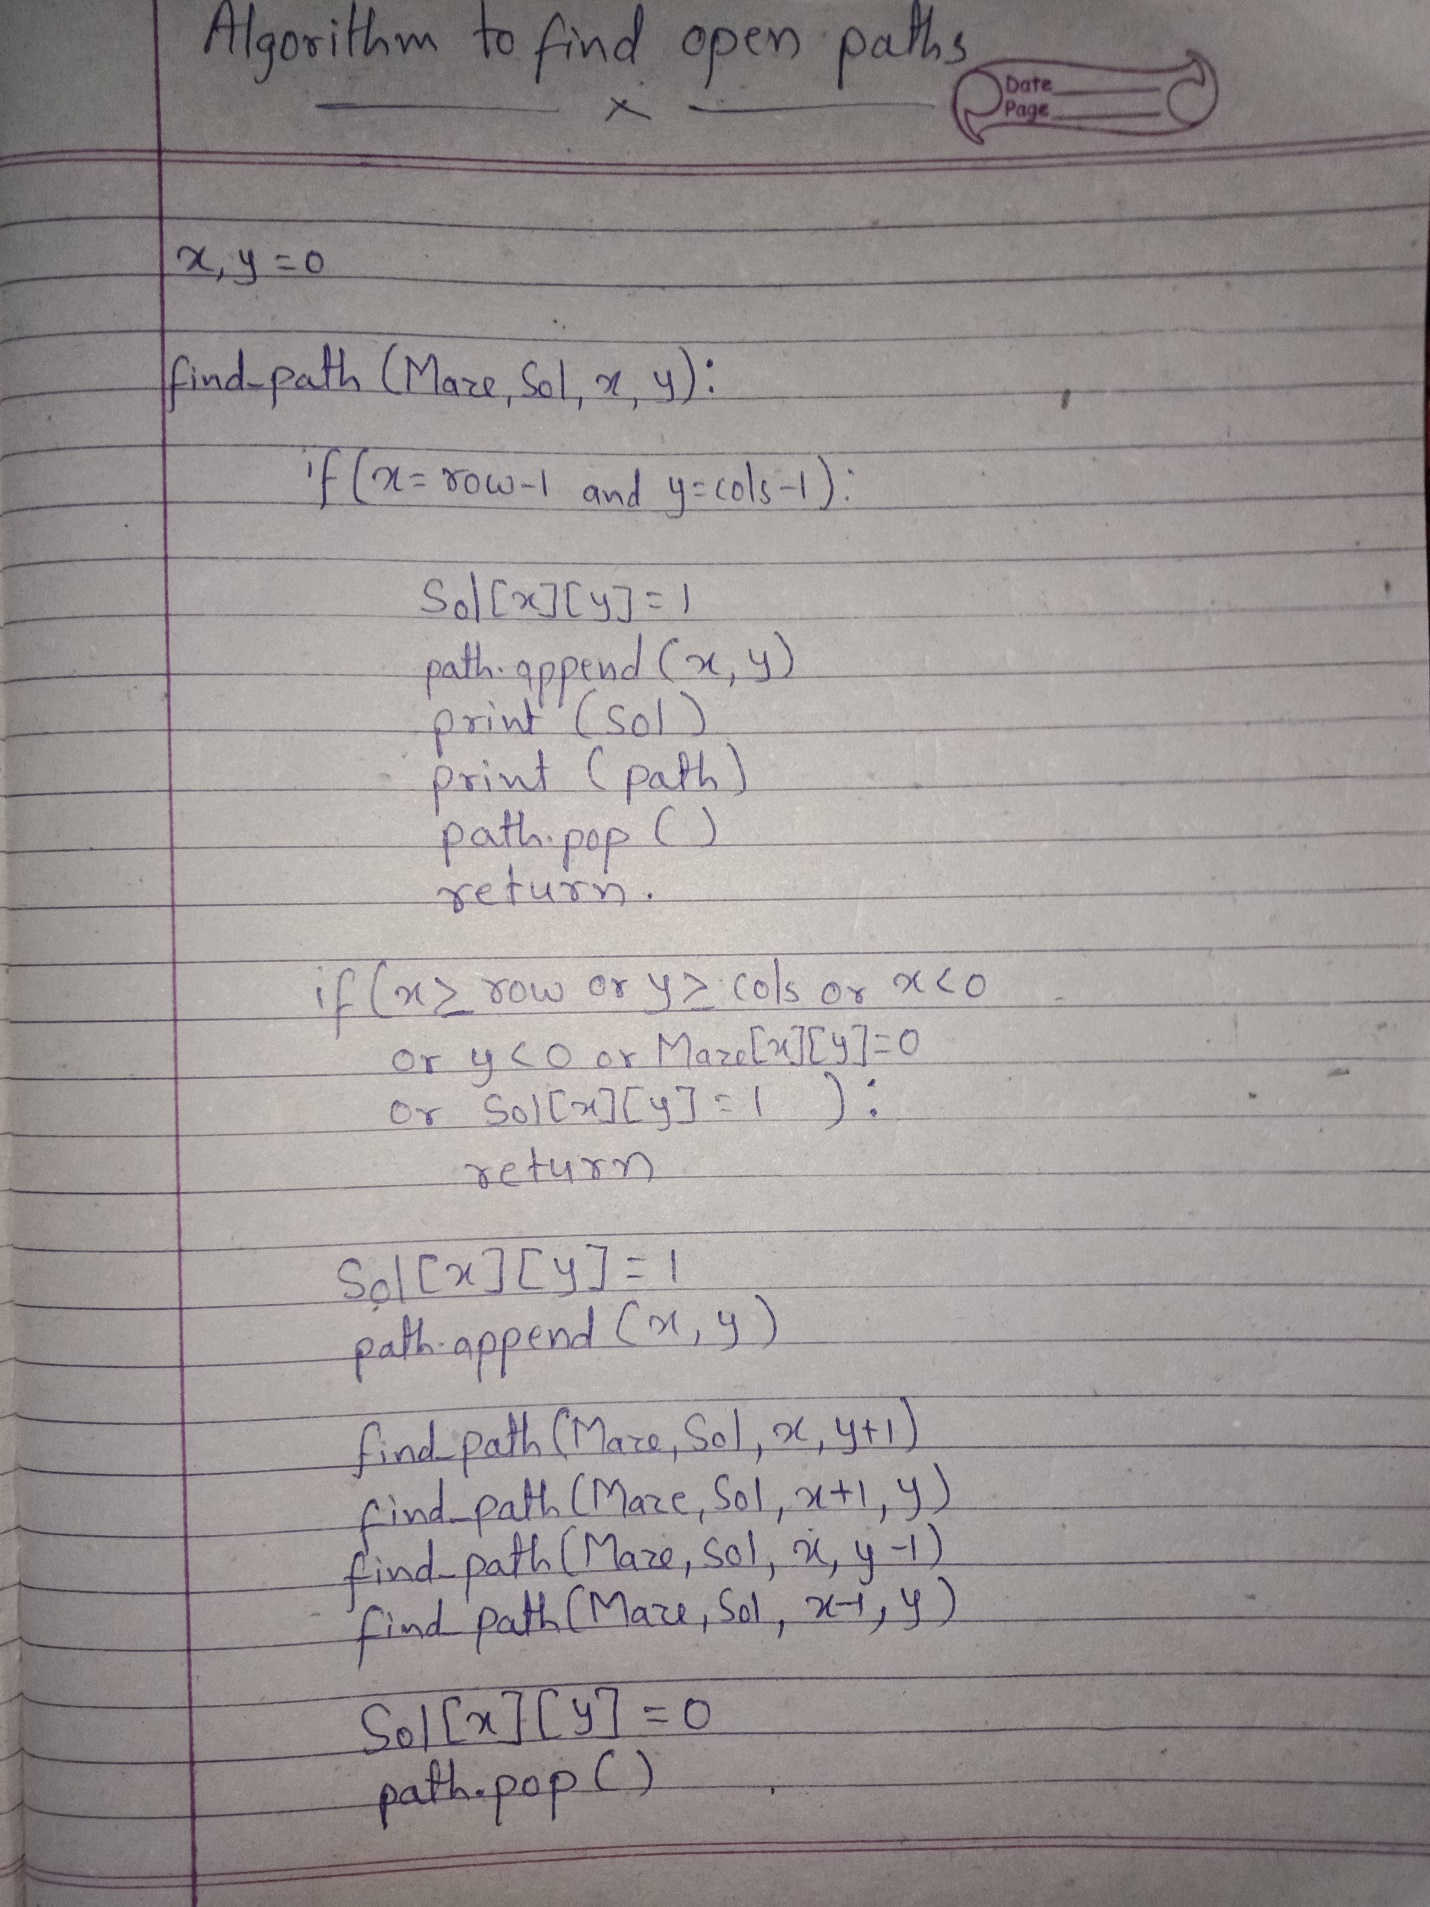 Algorithm to find open paths
x
Date
Page
x, y = 0
find_path (Maze, Sol, x, y):
if (x = row-1 and y = cols-1):
Sol[x][y] = 1
path.append (x, y)
print (sol)
print (path)
path.pop ()
return.
if (x ≥ row or y ≥ cols or x < 0
or y < 0 or Maze[x][y] = 0
or Sol[x][y] = 1 ):
return
Sol[x][y] = 1
path.append (x, y)
find_path (Maze, Sol, x, y+1)
find_path (Maze, Sol, x+1, y)
find_path (Maze, Sol, x, y-1)
find_path (Maze, Sol, x-1, y)
Sol[x][y] = 0
path.pop ()